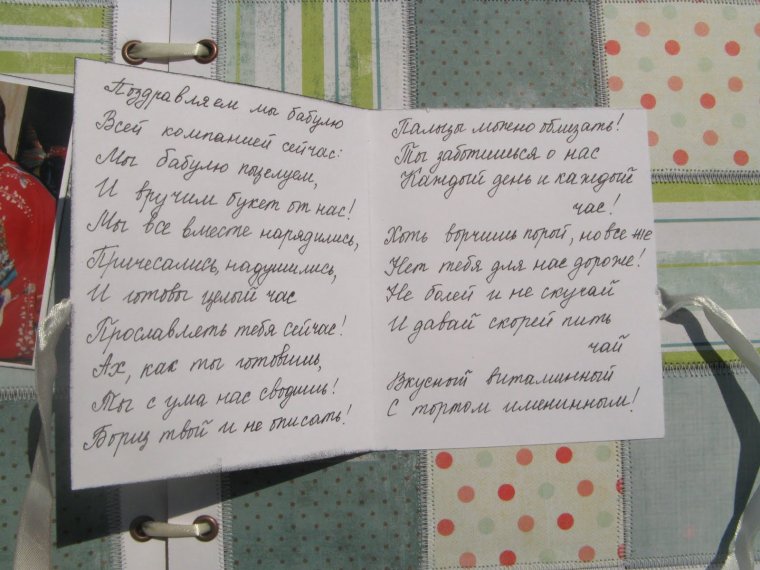 Поздравляем мы бабулю
Всей компанией сейчас:
Мы бабулю поцелуем,
И вручим букет от нас!
Мы все вместе нарядились,
Причесались, надушились,
И готовы целый час
Прославлять тебя сейчас!
Ах, как ты готовишь,
Ты с ума нас сводишь!
Борщ твой и не описать!
Пальцы можно облизать!
Ты заботишься о нас
Каждый день и каждый
час!
Хоть ворчишь порой, но все же
Нет тебя для нас дороже!
Не болей и не скучай
И давай скорей пить
чай
Вкусный витаминный
С тортом именинным!